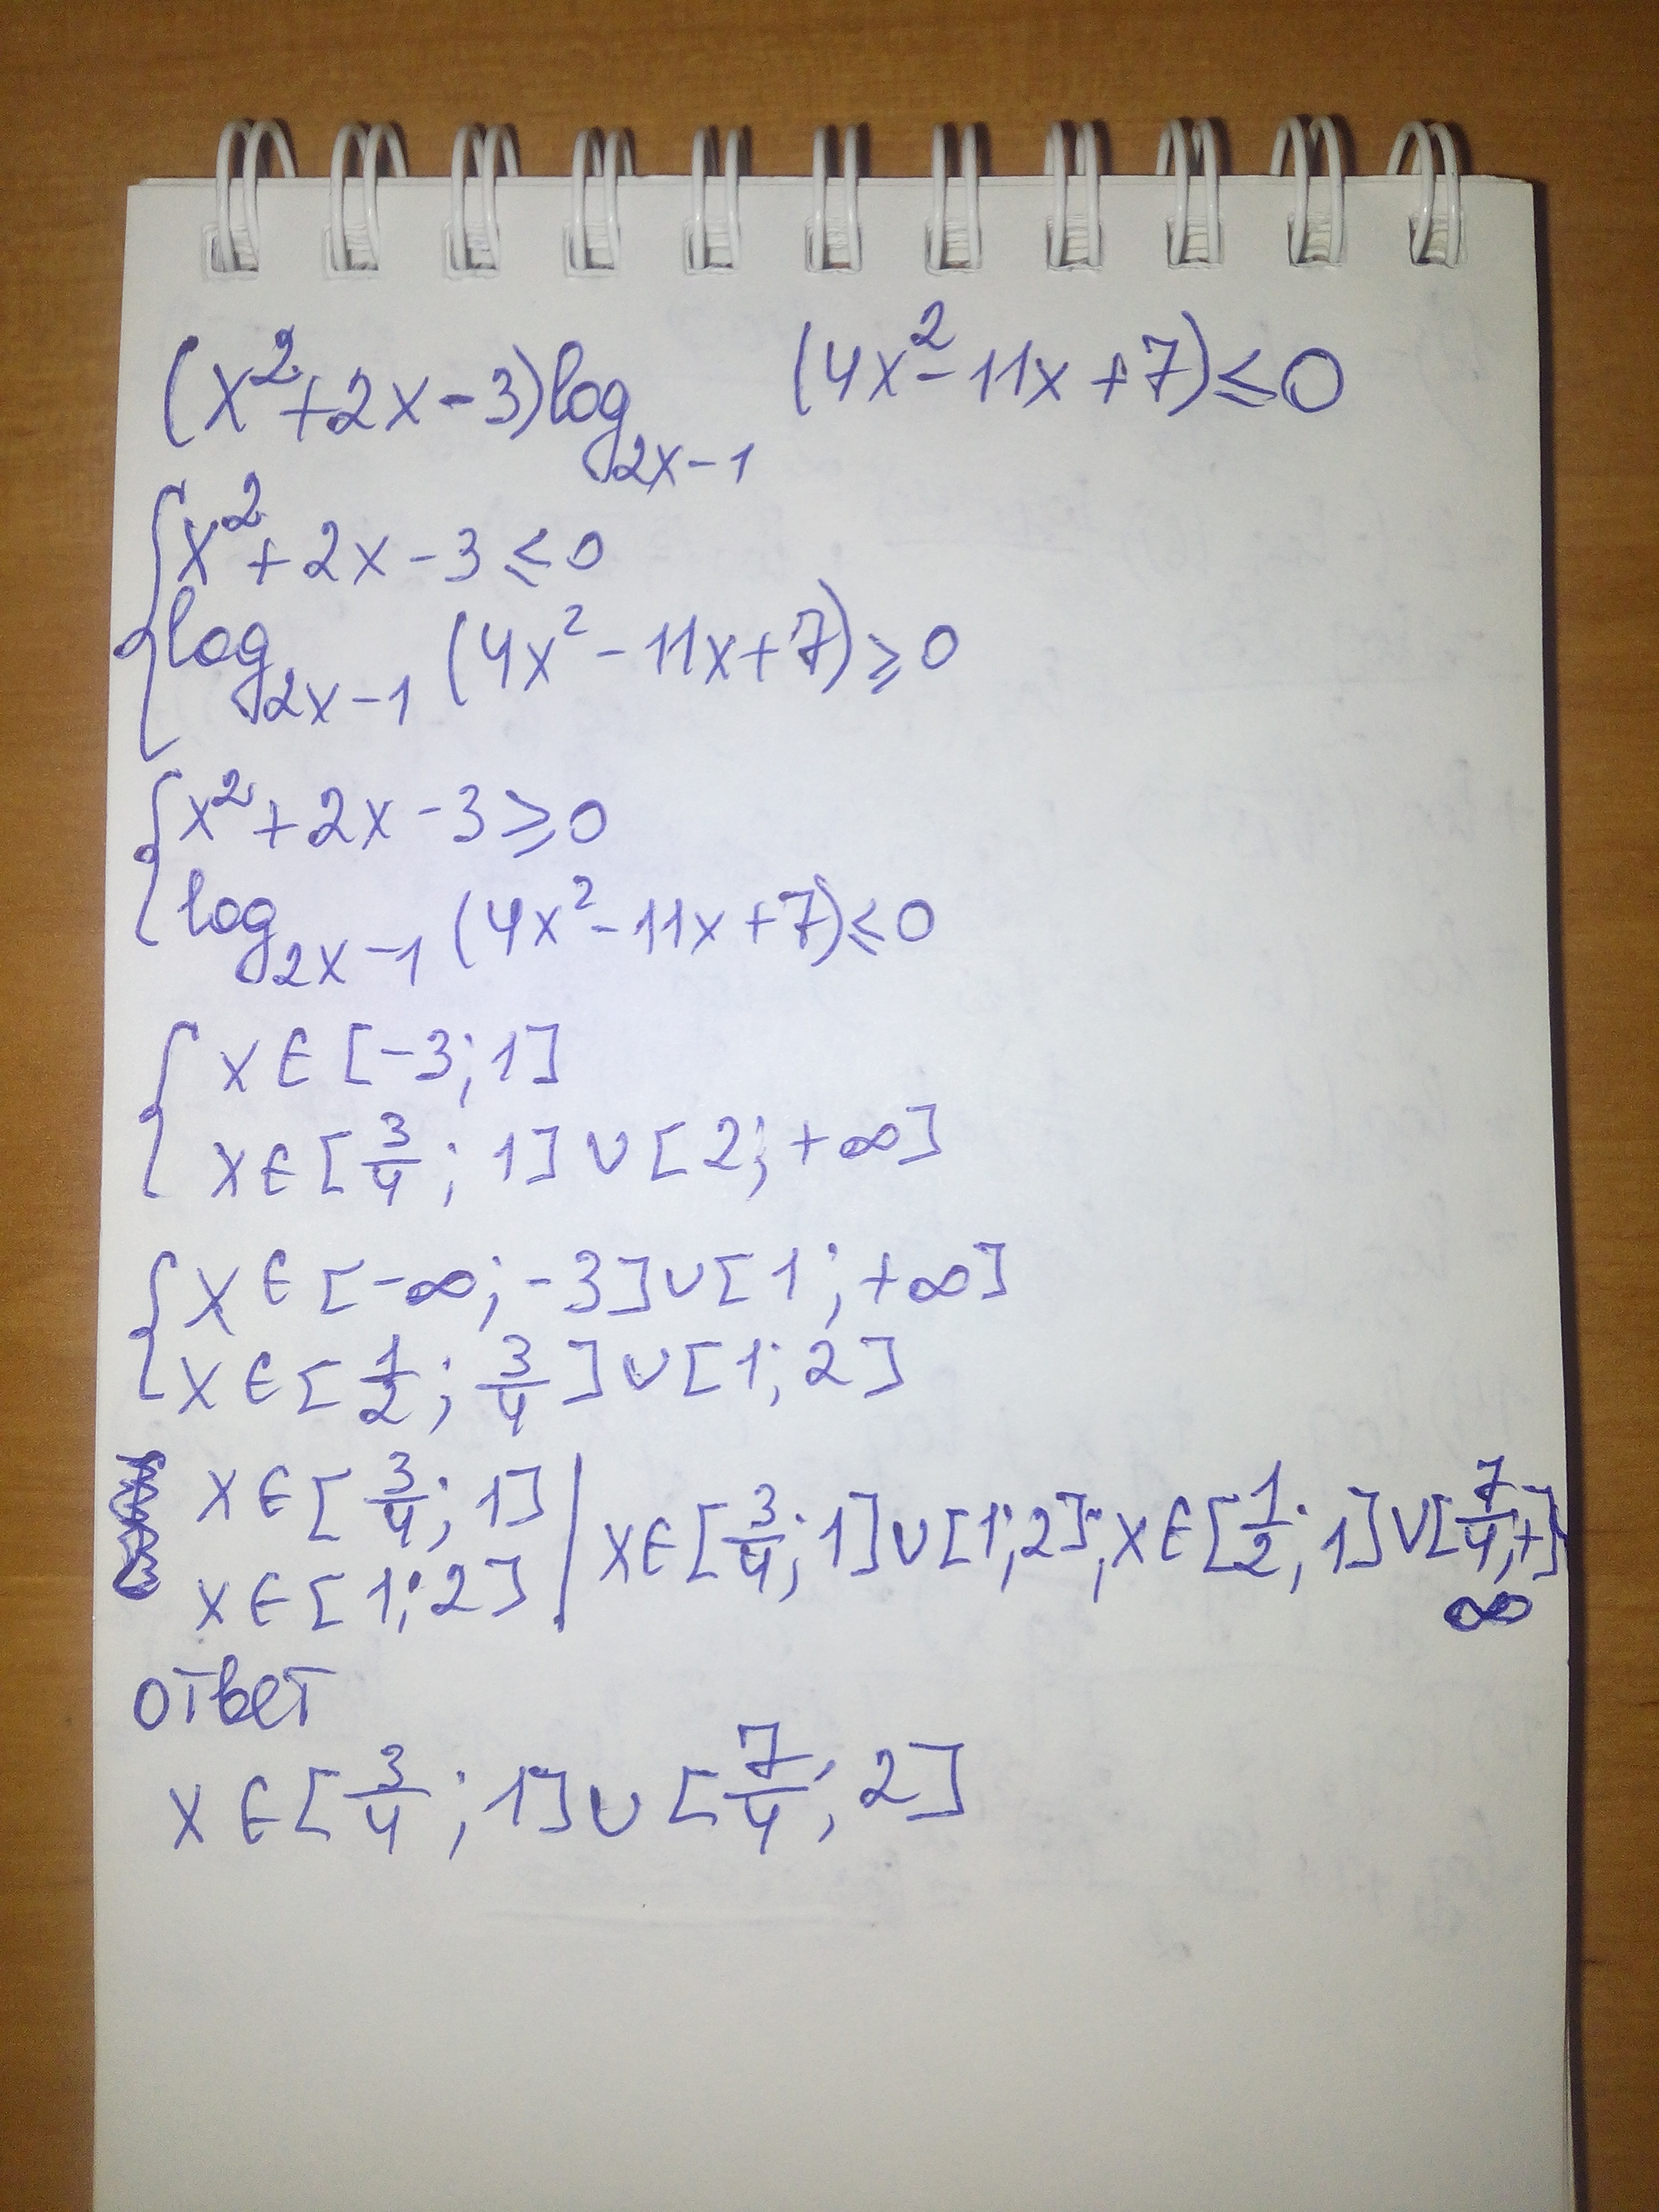 (x²+2x-3)log₂ₓ₋₁ (4x²-11x+7)≤0
{x²+2x-3≤0
log₂ₓ₋₁ (4x²-11x+7)≥0
{x²+2x-3≥0
log₂ₓ₋₁ (4x²-11x+7)≤0
{x∈[-3;1]
x∈[3/4;1]∪[2;+∞]
{x∈[-∞;-3]∪[1;+∞]
x∈[1/2;3/4]∪[1;2]
x∈[3/4;1] | x∈[3/4;1]∪[1;2]; x∈[1/2;1]∪[7/4;+∞]
x∈[1;2]
ответ
x∈[3/4;1]∪[7/4;2]